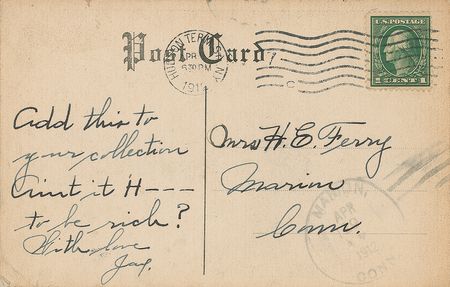 Post Card
HUDSON TERM. STA. N.Y.
APR
630 PM
1912
U.S. POSTAGE
1 CENT 1
Add this to
your collection
Aint it H---
to be rich?
With love
Jay.
Mrs H. E. Ferry
Marion
Conn.
MARION
APR
1912
CONN.